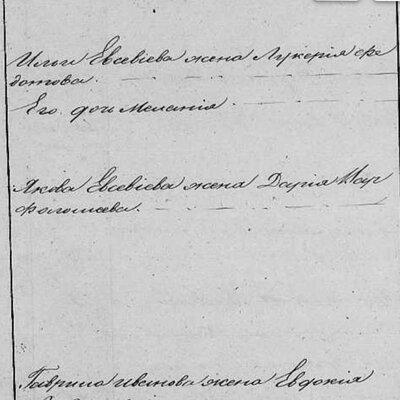 Ильи Евсевіева жена Лукерія Ѳе
дотова.
Его дочь Меланія.
Якова Евсевіева жена Дарія Вар
фоломѣева.
Гаврила Иванова жена Евдокія